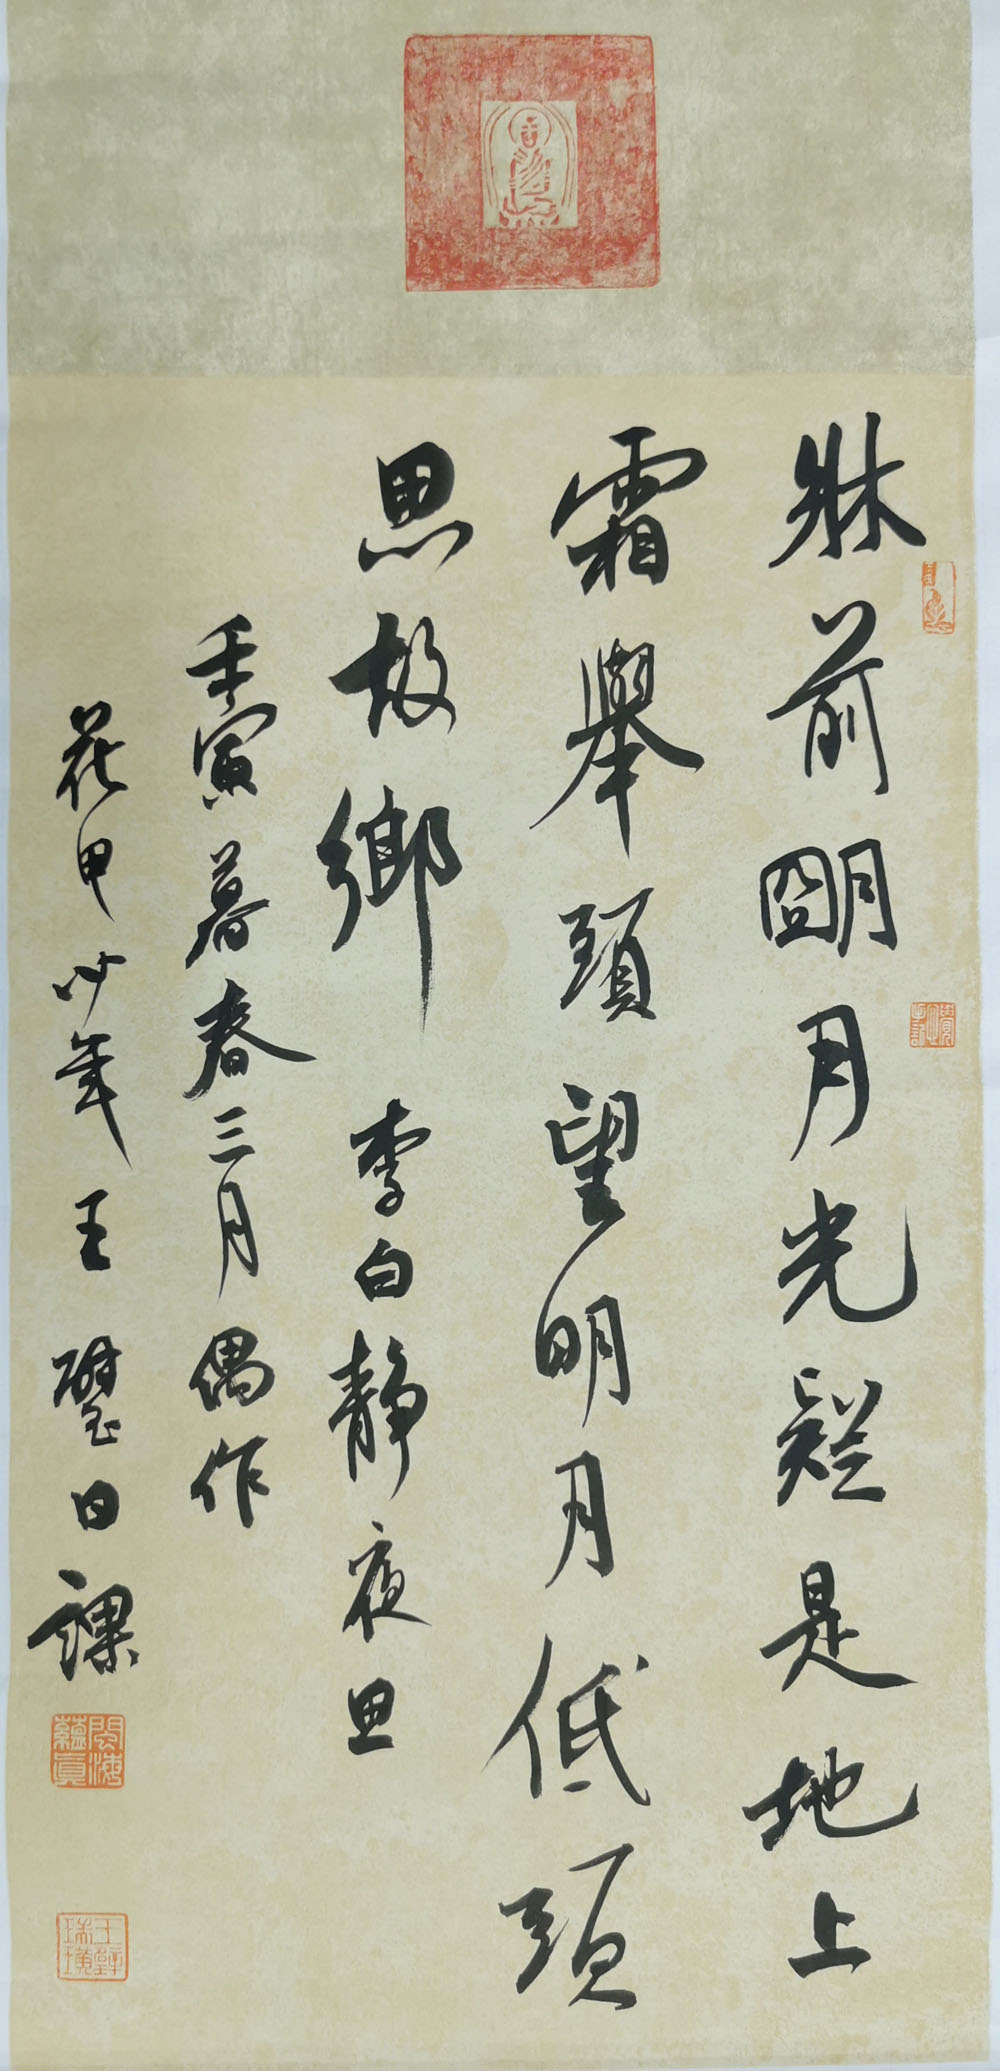 牀前朙月光疑是地上
霜舉頭望明月低頭
思故鄉 李白靜夜思
壬寅暮春三月偶作
花甲少年王璧日課
閩海蘊真
王璧